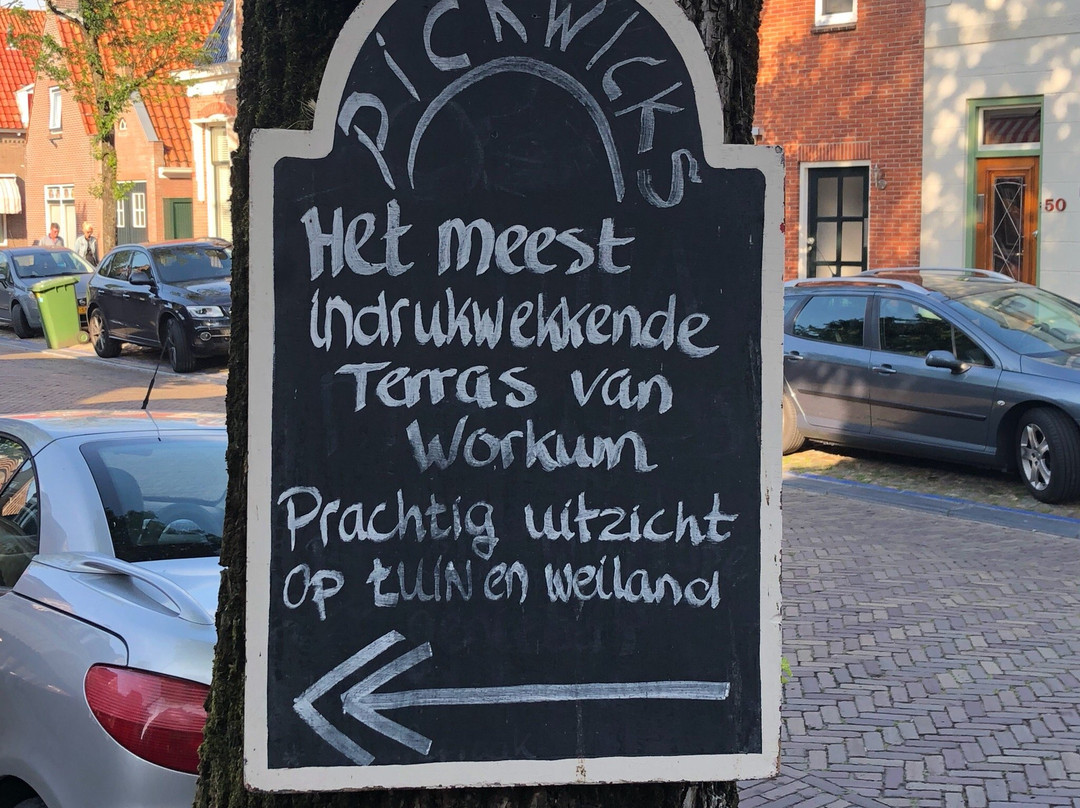 PICKWICKS
Het meest
indrukwekkende
Terras van
Workum
Prachtig uitzicht
op tuin en weiland
50